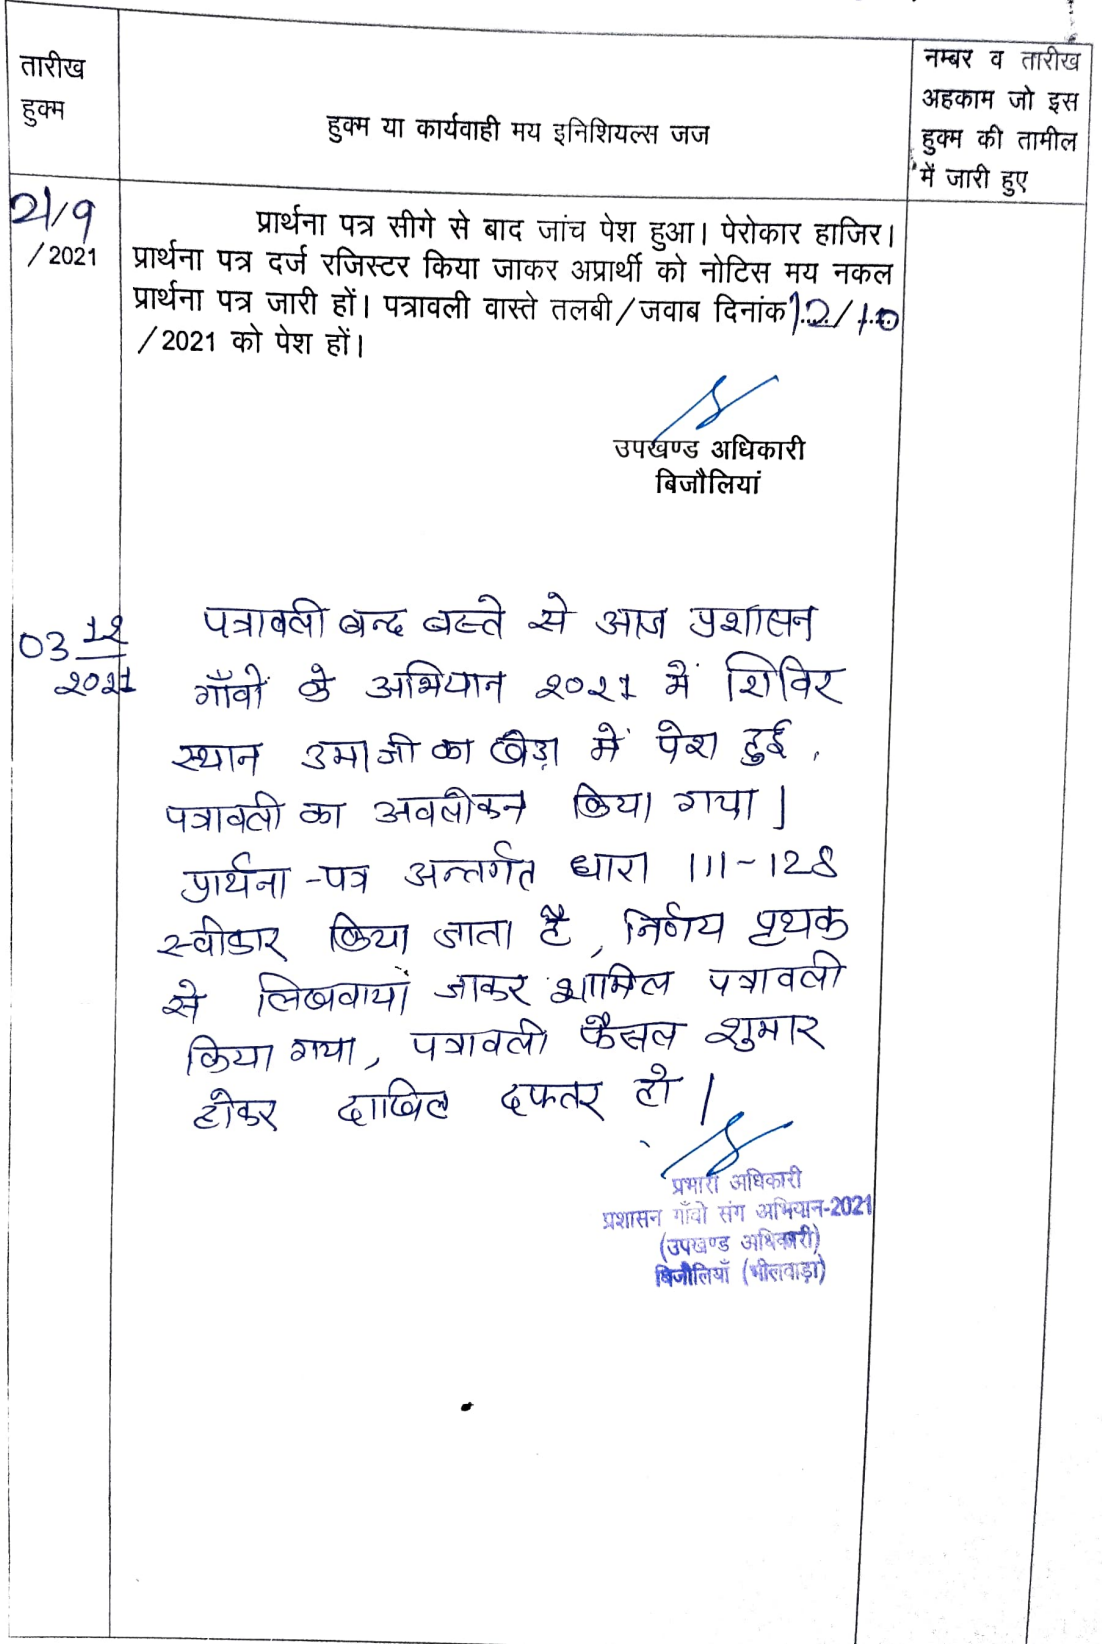 तारीख
हुक्म
हुक्म या कार्यवाही मय इनिशियल्स जज
नम्बर व तारीख
अहकाम जो इस
हुक्म की तामील
में जारी हुए
21/9
/2021
प्रार्थना पत्र सीगे से बाद जांच पेश हुआ। पेरोकार हाजिर।
प्रार्थना पत्र दर्ज रजिस्टर किया जाकर अप्रार्थी को नोटिस मय नकल
प्रार्थना पत्र जारी हों। पत्रावली वास्ते तलबी/जवाब दिनांक 12/10
/2021 को पेश हों।
उपखण्ड अधिकारी
बिजौलियां
03 12
2021
पत्रावली बन्द बस्ते से आज प्रशासन
गाँवों के अभियान २०२१ में शिविर
स्थान उमाजी का खेड़ा में पेश हुई,
पत्रावली का अवलोकन किया गया।
प्रार्थना-पत्र अन्तर्गत धारा 111-128
स्वीकार किया जाता है, निर्णय पृथक
से लिखवायां जाकर शामिल पत्रावली
किया गया, पत्रावली फैसल शुमार
होकर दाखिल दफ्तर हो।
प्रभारी अधिकारी
प्रशासन गाँवो संग अभियान-2021
(उपखण्ड अधिकारी)
बिजौलियाँ (भीलवाड़ा)